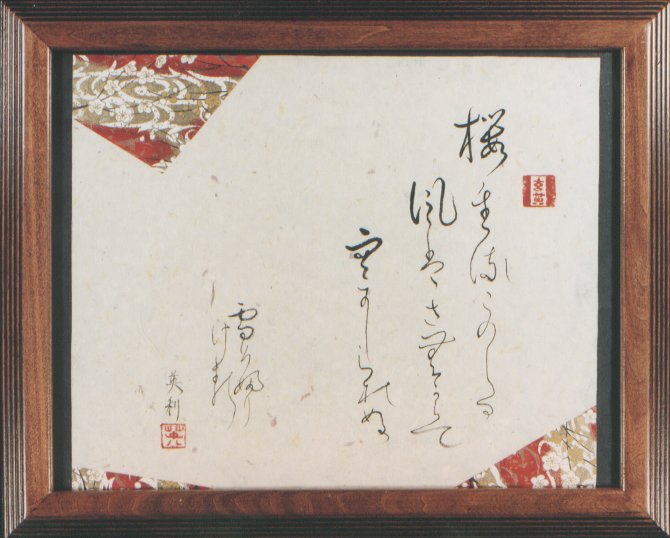 桜ちるこのした
風はさむからて
空にしられぬ
雪そふり
ける
英利